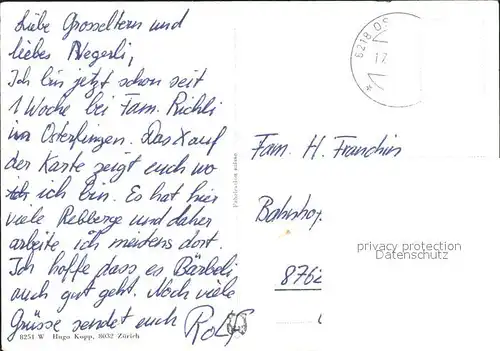 Liebe Grosseltern und
liebes Negerli,
Ich bin jetzt schon seit
1 Woche bei Fam. Richli
in Osterfingen. Das X auf
der Karte zeigt euch wo
ich bin. Es hat hier
viele Rebberge und daher
arbeite ich meistens dort.
Ich hoffe dass es Bärbeli
auch gut geht. Noch viele
Grüsse sendet euch Rolf
8251 W Hugo Kopp, 8032 Zürich
8218 OS
17.
Fam. H. Franchin
Bahnhof
8762
privacy protection
Datenschutz